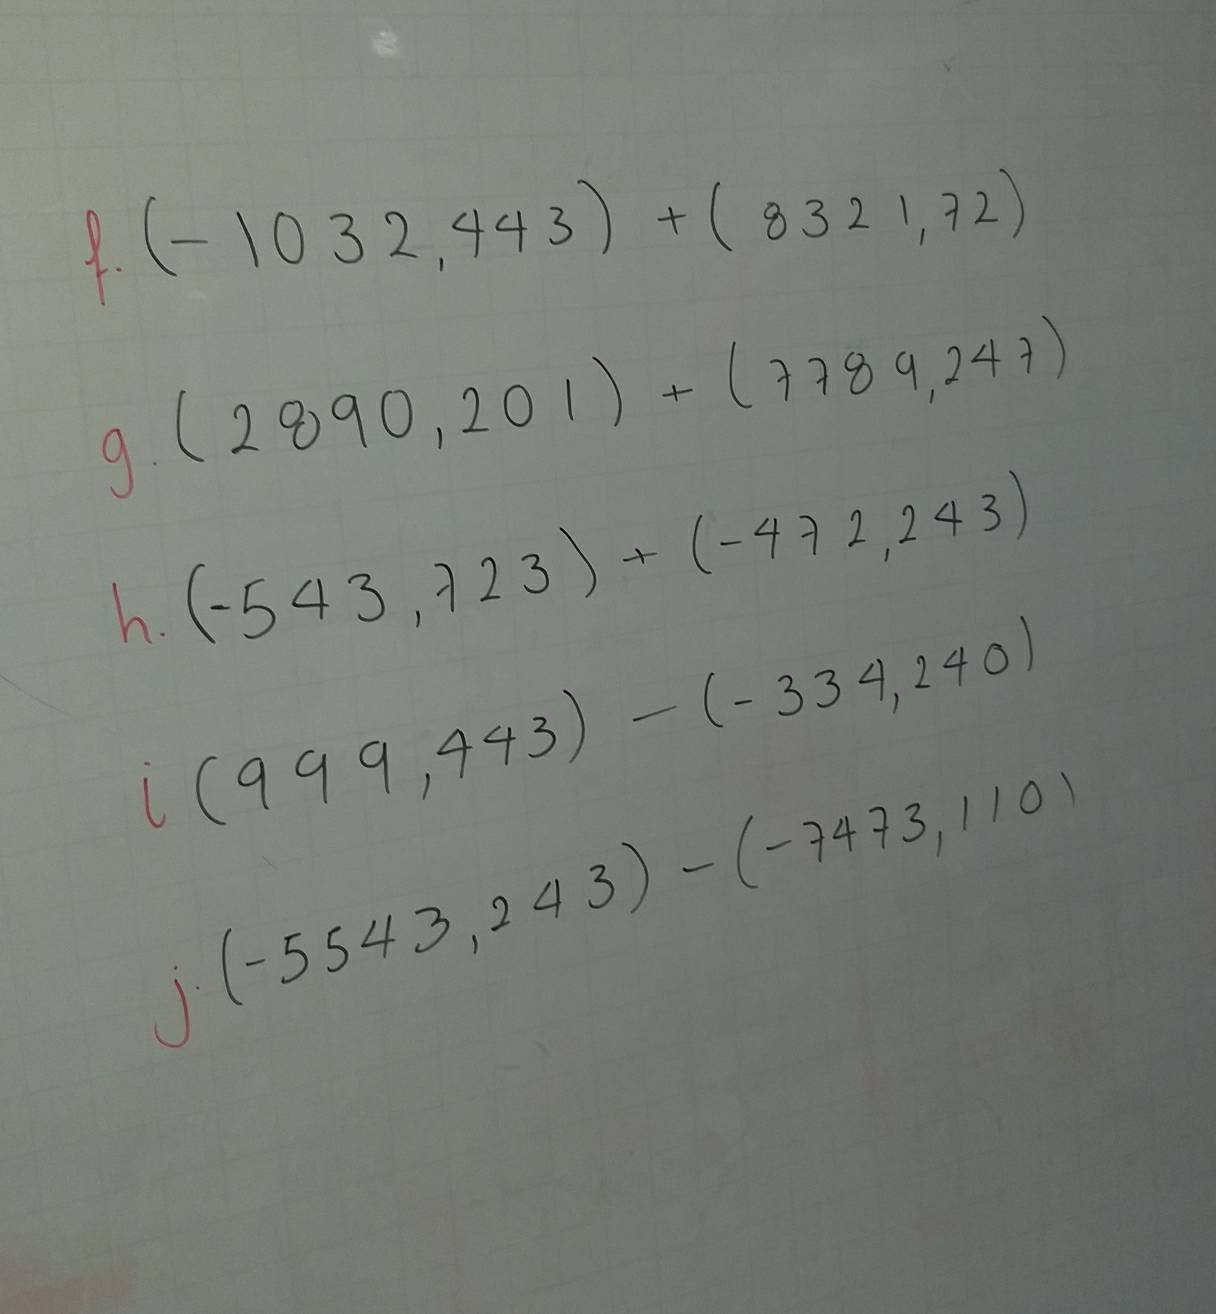 f. (-1032,443) + (8321,72)
g. (2890,201) + (7789,247)
h. (-543,723) + (-472,243)
i (999,443) - (-334,240)
j. (-5543,243) - (-7473,110)